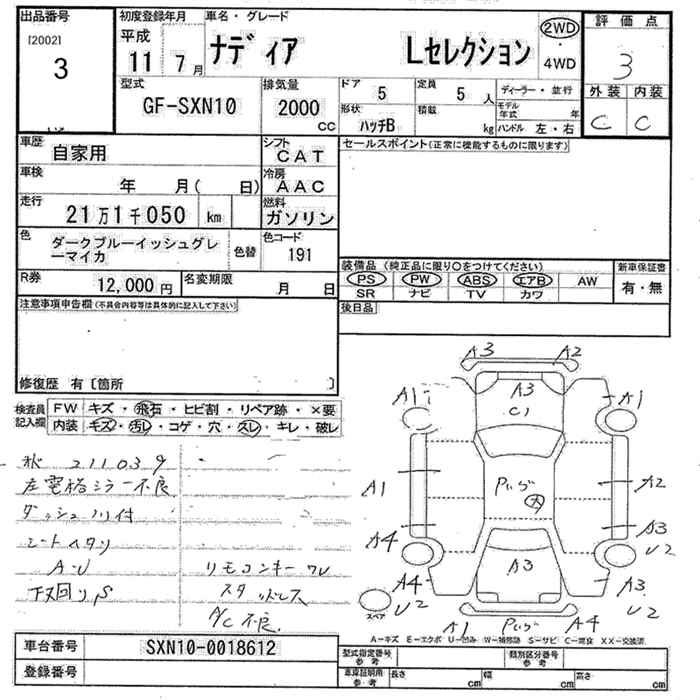 出品番号 初度登録年月 車名・グレード 2WD 評価点
[2002] 平成 ナディア Lセレクション ・ 3
3 11 7月 4WD
型式 排気量 ドア 5 定員 5人 ディーラー・並行 外装 内装
GF-SXN10 2000 CC 形状 ハッチB 積載 kg モデル年式 年 C C
ハンドル 左・右
車歴 自家用 シフト CAT セールスポイント(正常に機能するものに限ります)
車検 年 月( 日) 冷房 AAC
走行 21万1千050 km 燃料 ガソリン
色 ダークブルーイッシュグレ 色替 色コード
ーマイカ 191
装備品(純正品に限り○をつけてください) 新車保証書
R券 12,000円 名変期限 月 日 PS PW ABS エアB AW 有・無
SR ナビ TV カワ
注意事項申告欄(不具合内容等は具体的に記入して下さい) 後日品
修復歴 有〔箇所 〕
検査員 FW キズ・飛石・ヒビ割・リペア跡・×要
記入欄 内装 キズ・汚レ・コゲ・穴・スレ・キレ・破レ
211039
左電格ミラー不良
ダッシュ 付
シートヘタリ
A・U リモコンキー
下回りS スタッドレス
A/C不良
A3 A2
A1 A3 A1
C1
A1 A2
A4 A3
U2
A4 A3 A3
U2 U2
スペア
A1 A4
A=キズ E=エクボ U=凹み W=補修跡 S=サビ C=腐食 XX=交換済
車台番号 SXN10-0018612 型式指定番号 参考 類別区分番号 参考
登録番号 車庫証明用 参考 長さ cm 幅 cm 高さ cm